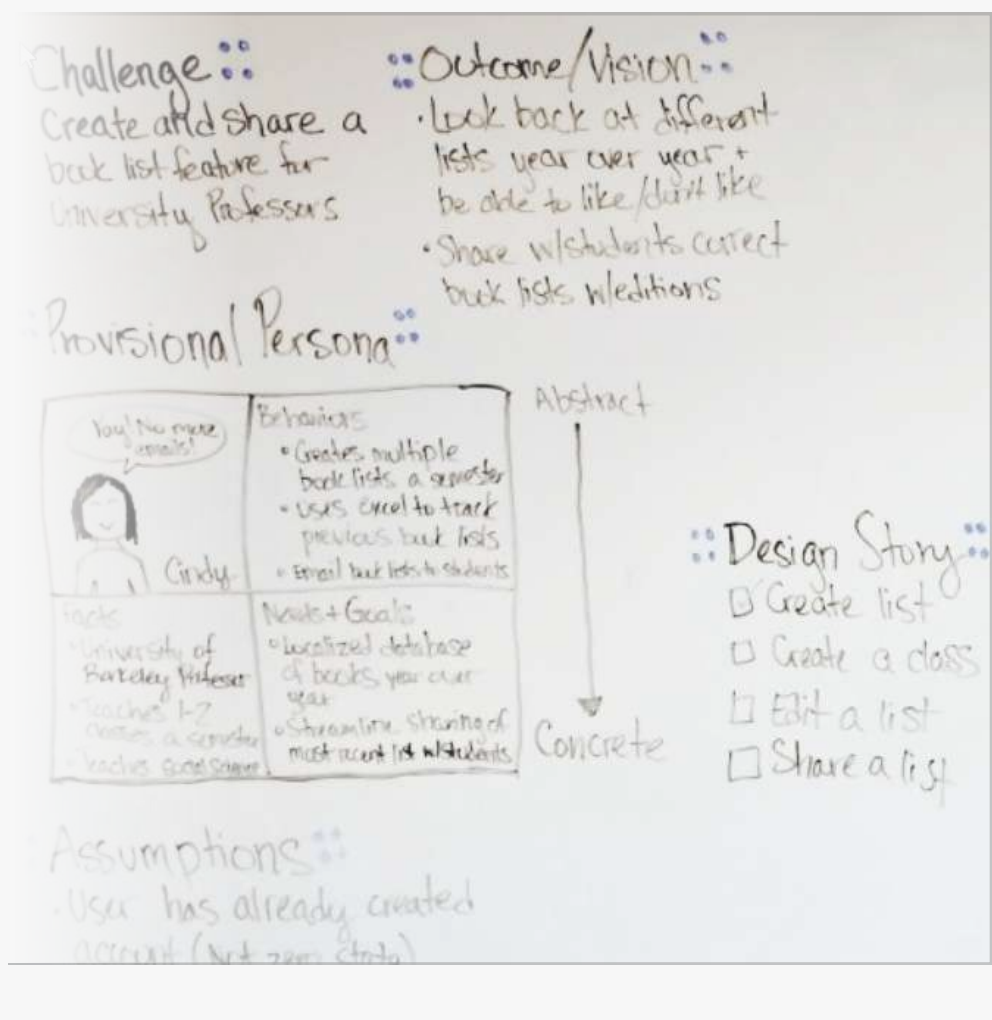 Challenge
Create and share a
book list feature for
University Professors
Outcome/Vision
• Look back at different
lists year over year +
be able to like/don't like
• Share w/students correct
book lists w/editions
Provisional Persona
Yay! No more
emails!
Cindy
Behaviors
• Creates multiple
book lists a semester
• Uses Excel to track
previous book lists
• Email book lists to students
Facts
• University of
Berkeley Professor
• Teaches 1-2
classes a semester
• Teaches
Needs + Goals
• Localized database
of books year over
year
• Streamline sharing of
most recent list w/students
Abstract
Concrete
Design Story
Create list
Create a class
Edit a list
Share a list
Assumptions
• User has already created
account (Not zero state)